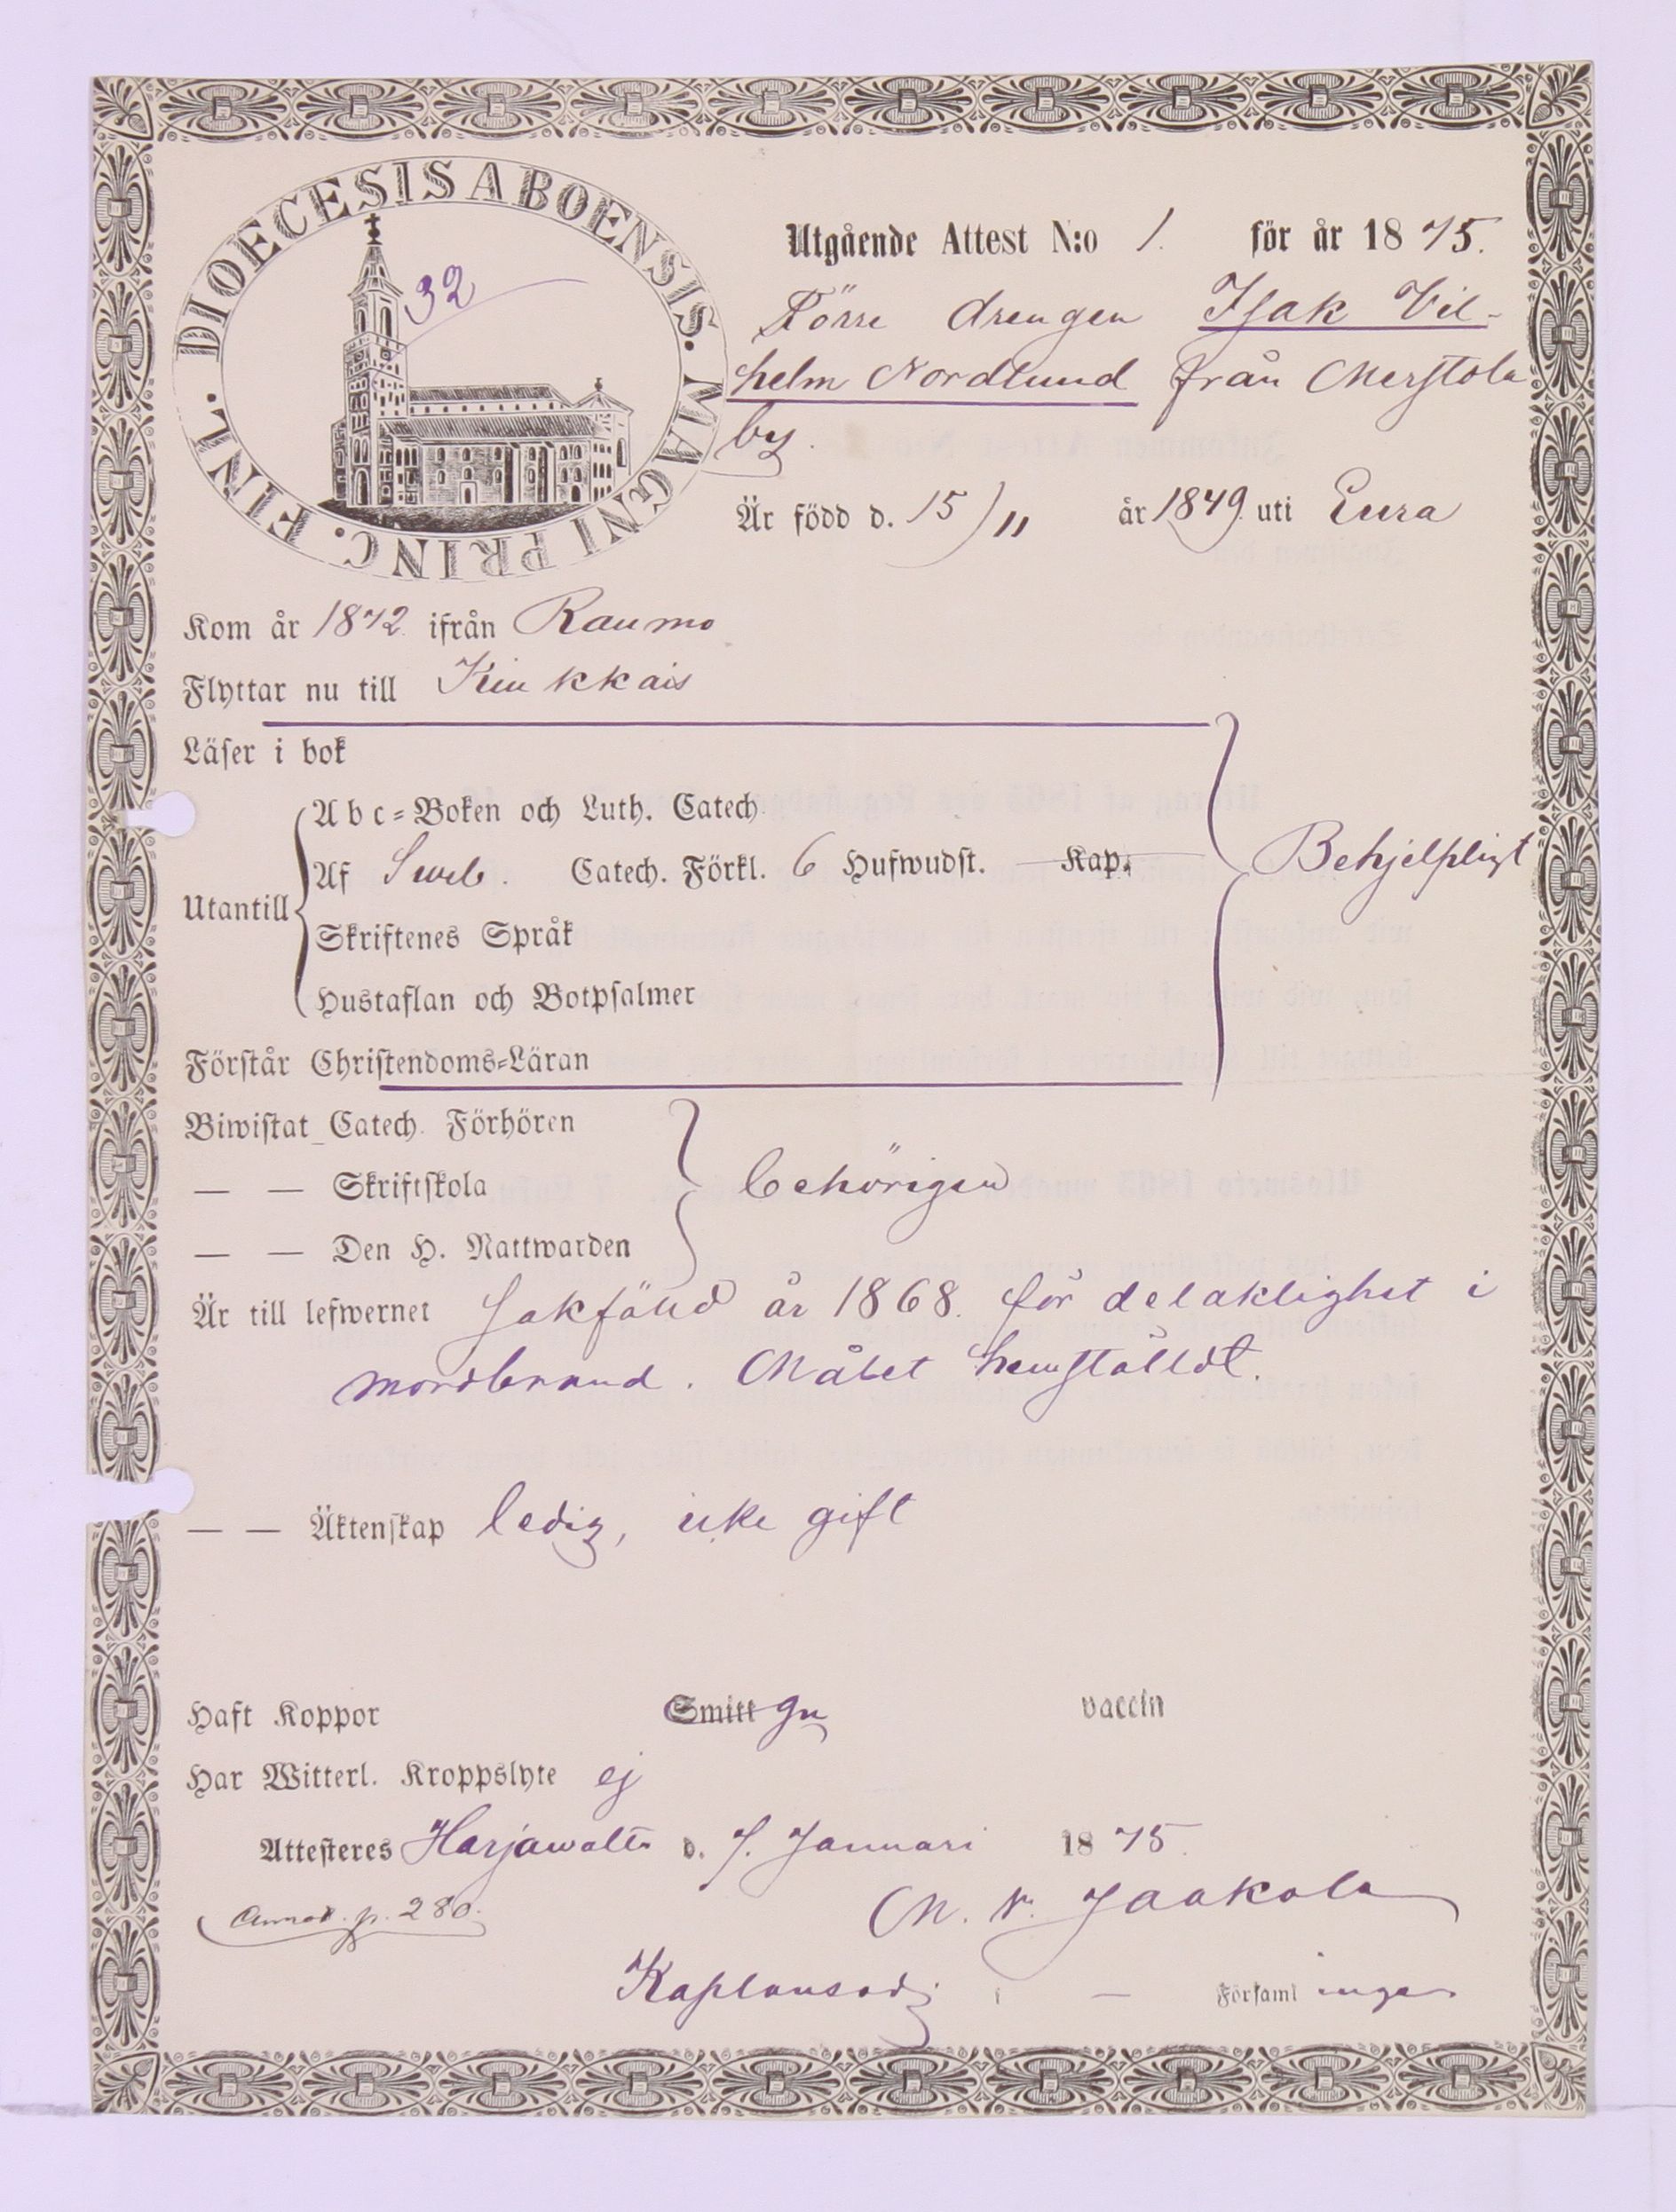 DIOECESIS ABOENSIS. MAGNI PRINC. FINL.
32
Utgående Attest N:o 1. för år 1875.
Förre drengen Isak Vil-
helm Nordlund från Merstola
by.
Är född d. 15/11 år 1849 uti Eura
Kom år 1872 ifrån Raumo
Flyttar nu till Kiukkais
Läser i bok
Utantill
Abc-Boken och Luth. Catech.
Af Sweb. Catech. Förkl. 6 Hufwudst. Kap.
Skriftenes Språk
Hustaflan och Botpsalmer
Behjelpligt
Förstår Christendoms-Läran
Biwistat Catech. Förhören
— — Skriftskola behörigen
— — Den H. Nattwarden
Är till lefwernet sakfälld år 1868. för delaktighet i
mordbrand. Målet hemställdt.
— — Äktenskap ledig, icke gift
Haft Koppor Smitt gn vaccin
Har Witterl. Kroppslyte ej
Attesteres Harjawalta d. 7. Januari 1875.
Annot. p. 280.
M. N. Jaakola
Kaplansadj. i — Församl ingen